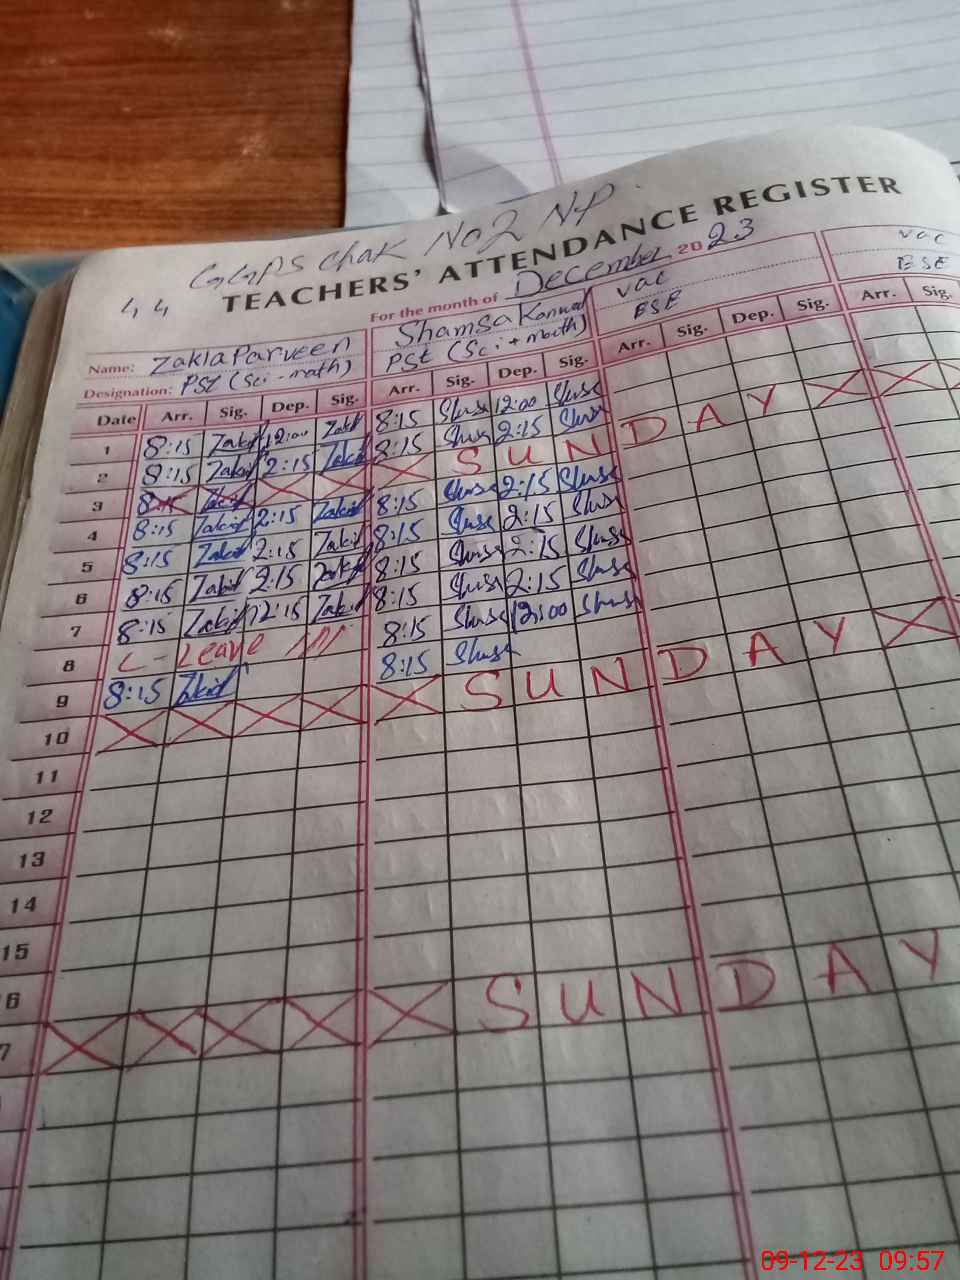 GGPS Chak No2 NP.
44
TEACHERS' ATTENDANCE REGISTER
For the month of December 2023
Name: Zakia Parveen Shamsa Kanwal Vac Vac
Designation: PST (Sci-math) PST (Sci+math) ESE ESE
Date Arr. Sig. Dep. Sig. Arr. Sig. Dep. Sig. Arr. Sig. Dep. Sig. Arr. Sig.
1 8:15 Zakia 12:00 Zakia 8:15 Shusa 12:00 Shusa
2 8:15 Zakia 2:15 Zakia 8:15 Shusa 2:15 Shusa
3 8:15 Zakia X X X SUNDAY X X X
4 8:15 Zakia 2:15 Zakia 8:15 Shusa 2:15 Shusa
5 8:15 Zakia 2:15 Zakia 8:15 Shusa 2:15 Shusa
6 8:15 Zakia 2:15 Zakia 8:15 Shusa 2:15 Shusa
7 8:15 Zakia 12:15 Zakia 8:15 Shusa 2:15 Shusa
8 C-Leave 8:15 Shusa 12:00 Shusa
9 8:15 Zakia 8:15 Shusa
10 X X X X X SUNDAY X
11
12
13
14
15
6
7 X X X X X SUNDAY
09-12-23 09:57